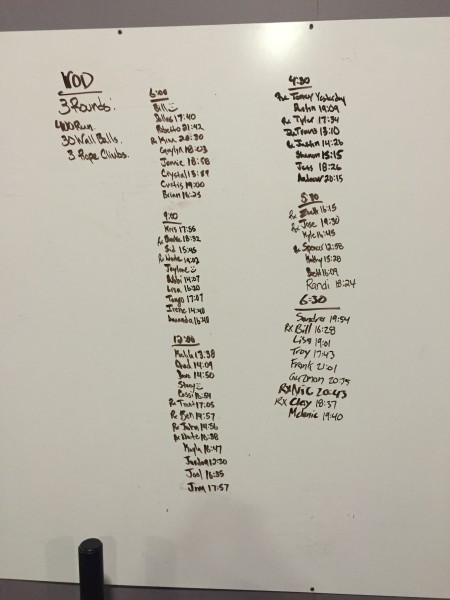 WOD
3 Rounds:
400 Run
30 Wall Balls
3 Rope Climbs.
6:00
Bill
Dallas 17:40
Roberto 21:42
Rx Kim 20:30
18:03
Jamie 18:58
Crystal
Curtis 19:00
Brian 16:23
9:00
Kris 17:55
Rx 18:32
Sid 15:45
Rx Nate 19:02
Jaylene
Bobbi 14:07
16:20
17:07
Irene 14:40
Amanda 16:48
12:00
13:38
Chad 14:09
Dave 14:50
Stacy
Cassi
Rx Trent 17:05
Rx Ben 14:57
Rx John 14:56
Rx Nate
Kayla 16:47
12:30
Joel 16:35
17:57
4:30
Rx Tamey Yesterday
Dustin 19:09
Rx Tyler 17:34
Rx Travis 13:10
Rx Justin 14:26
Shannon 15:15
18:26
Andrew 20:15
5:30
Rx 16:15
Rx Jose 19:30
Kyle 16:45
Rx Spencer 12:58
Kathy 15:28
16:09
Randi 18:24
6:30
Sandra 19:54
Rx Bill 16:28
Lisa 19:01
Troy 17:43
Frank 21:01
Guzman
Rx Nic 20:43
Rx Clay 18:37
Melanie 19:40